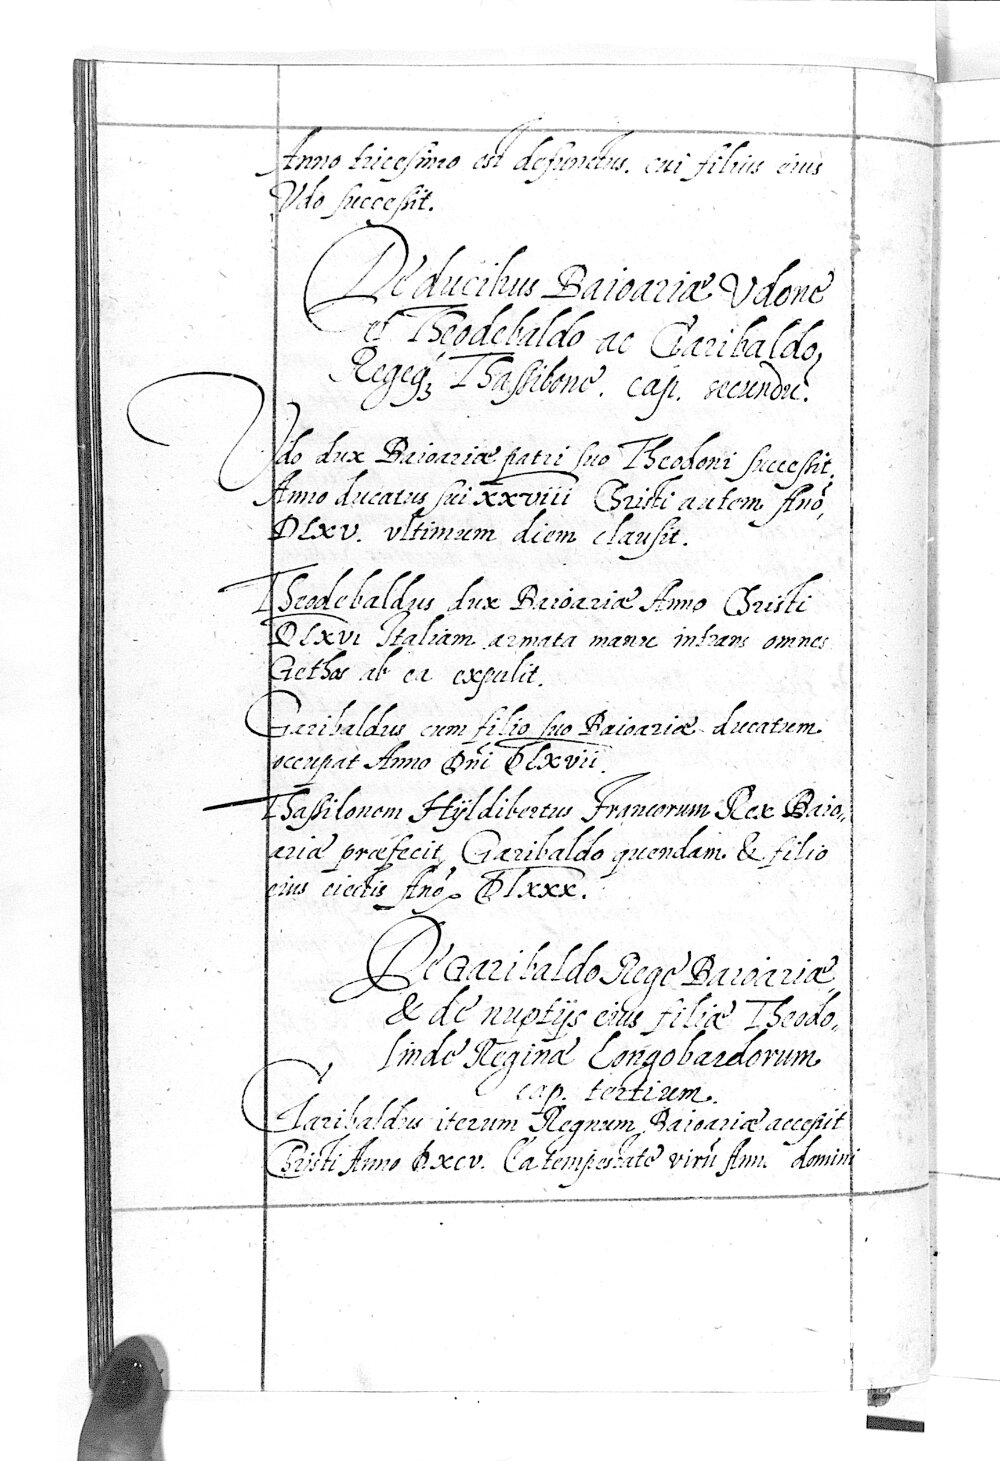 Anno tricesimo est defunctus. cui filius eius
Vdo successit.
De ducibus Baioariæ Vdone
et Theodebaldo ac Garibaldo,
Regeq; Thassilone. cap. secundū.
Vdo dux Baioariæ patri suo Theodoni successit.
Anno ducatus sui XXVIII Christi autem Año,
DLXV. vltimum diem clausit.
Theodebaldus dux Baioariæ Anno Christi
DLXVI Italiam armata manu intrans omnes
Gothos ab ea expulit.
Garibaldus cum filio suo Baioariæ ducatum
occupat Anno Dñi DLXVII.
Thassilonem Hÿldibertus Francorum Rex Baio,
ariæ præfecit, Garibaldo quendam & filio
eius eiectis Año DLXXX.
De Garibaldo Rege Baioariæ
& de nuptijs eius filiæ Theodo,
lindæ Reginæ Longobardorum
cap. tertium.
Garibaldus iterum Regnum Baioariæ accepit
Christi Anno DXCV. Ea tempestate virū Ann. domini